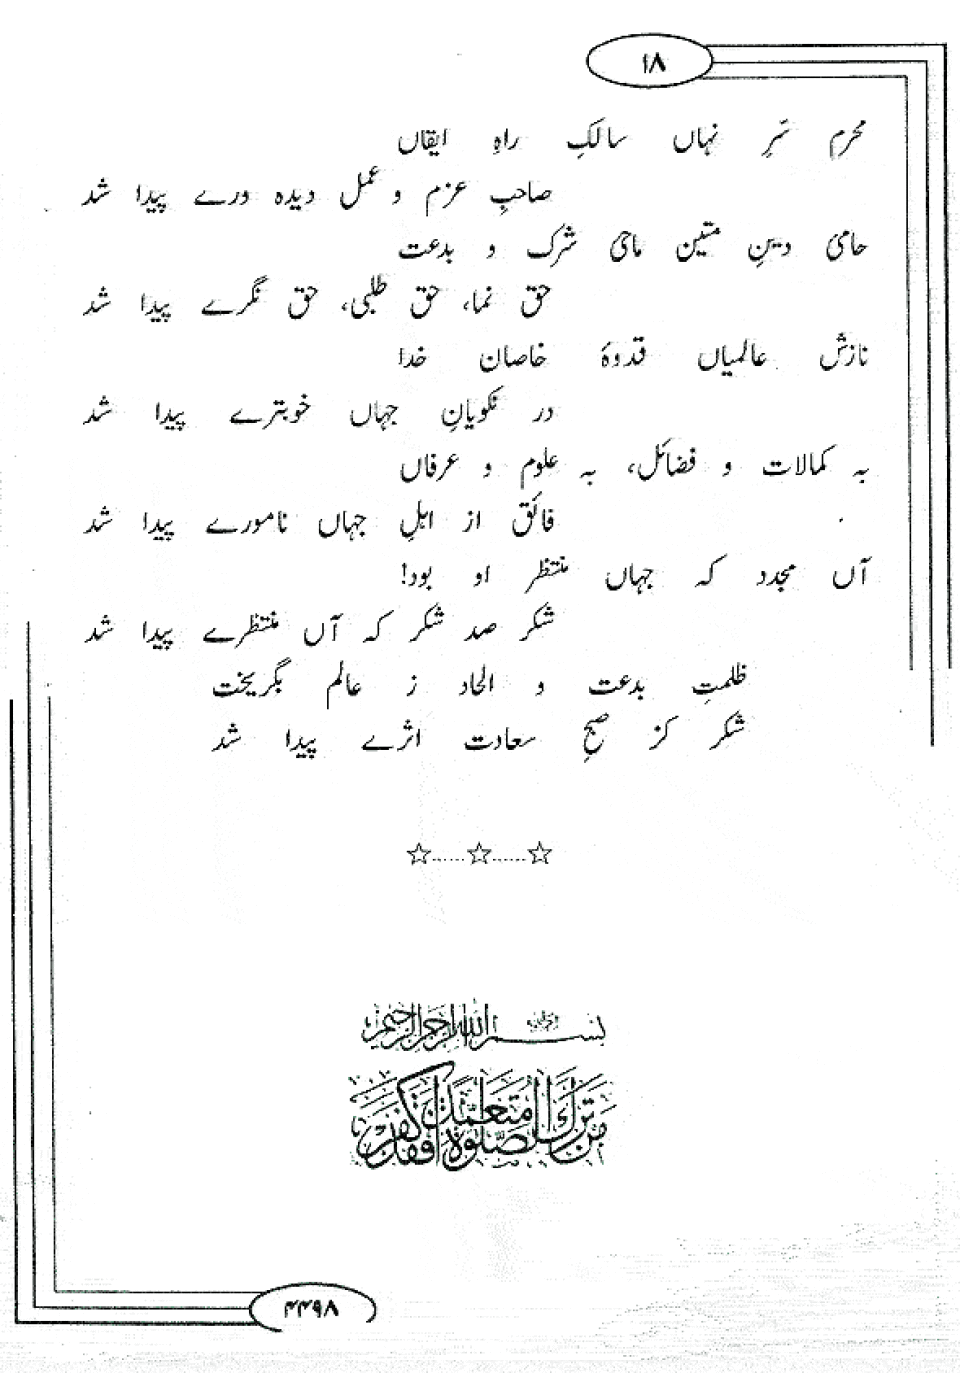 ۱۸
محرم سرِ نہاں سالکِ راہِ ایقاں
صاحبِ عزم و عمل دیدہ ورے پیدا شد
حامیٔ دینِ متین ماحیٔ شرک و بدعت
حق نما، حق طلبی، حق نگرے پیدا شد
نازشِ عالمیاں قدوۂ خاصان خدا
در نکویانِ جہاں خوبترے پیدا شد
بہ کمالات و فضائل، بہ علوم و عرفاں
فائق از اہلِ جہاں نامورے پیدا شد
آں مجدد کہ جہاں منتظر او بود!
شکر صد شکر کہ آں منتظرے پیدا شد
ظلمتِ بدعت و الحاد ز عالم بگریخت
شکر کز صبحِ سعادت اثرے پیدا شد
☆......☆......☆
بسم الله الرحمن الرحيم
من ترك الصلوة متعمدا فقد كفر
۴۴۹۸